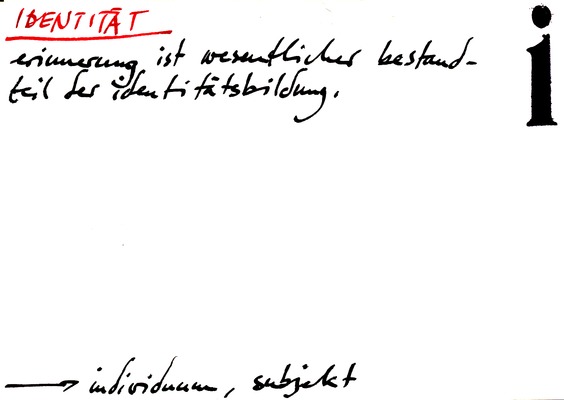 IDENTITÄT
i
erinnerung ist wesentlicher bestand-
teil der identitätsbildung.
→ individuum, subjekt